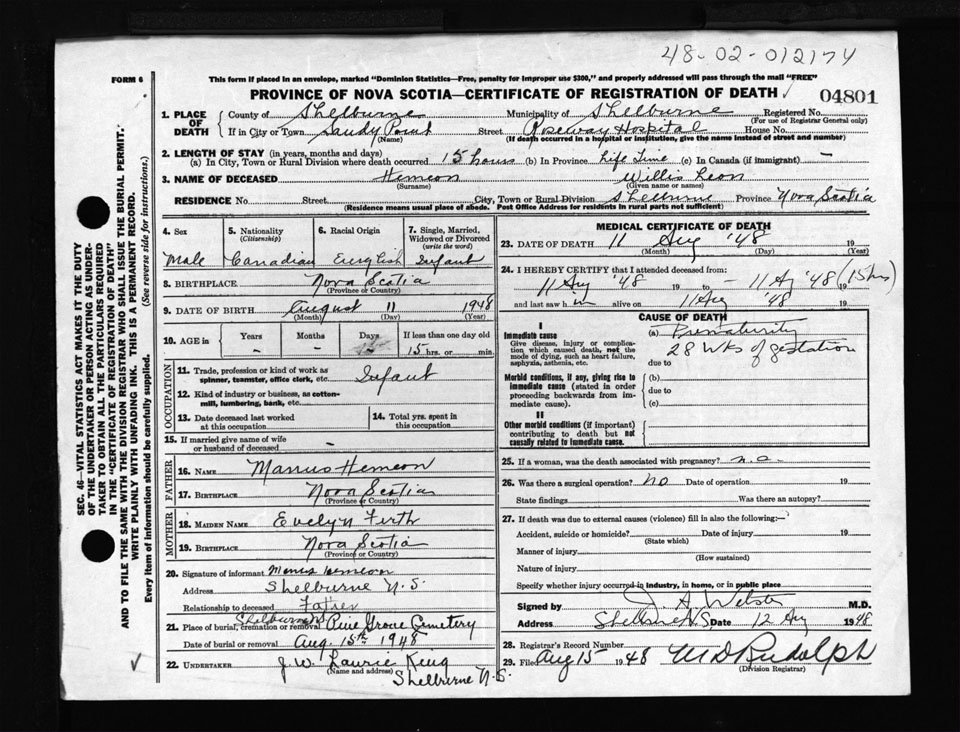 48-02-012174
FORM 6
This form if placed in an envelope, marked "Dominion Statistics—Free, penalty for improper use $300," and properly addressed will pass through the mail "FREE"
PROVINCE OF NOVA SCOTIA—CERTIFICATE OF REGISTRATION OF DEATH ✓
04801
1. PLACE OF DEATH
County of Shelburne Municipality of Shelburne Registered No.
(For use of Registrar General only)
If in City or Town Sandy Point Street Roseway Hospital House No.
(Name) (If death occurred in a hospital or institution, give the name instead of street and number)
2. LENGTH OF STAY (in years, months and days)
(a) In City, Town or Rural Division where death occurred 15 hours (b) In Province Life Time (c) In Canada (if immigrant) —
3. NAME OF DECEASED Hemeon Willis Leon
(Surname) (Given name or names)
RESIDENCE No. Street City, Town or Rural Division Shelburne Province Nova Scotia
(Residence means usual place of abode. Post Office Address for residents in rural parts not sufficient)
4. Sex
Male
5. Nationality
(Citizenship)
Canadian
6. Racial Origin
English
7. Single, Married, Widowed or Divorced
(write the word)
Infant
8. BIRTHPLACE Nova Scotia
(Province or Country)
9. DATE OF BIRTH August 11 1948
(Month) (Day) (Year)
10. AGE in Years Months Days If less than one day old
– – 15 hrs. or min.
OCCUPATION
11. Trade, profession or kind of work as spinner, teamster, office clerk, etc. Infant
12. Kind of industry or business, as cotton-mill, lumbering, bank, etc.
13. Date deceased last worked at this occupation
14. Total yrs. spent in this occupation
15. If married give name of wife or husband of deceased –
FATHER
16. NAME Marcus Hemeon
17. BIRTHPLACE Nova Scotia
(Province or Country)
MOTHER
18. MAIDEN NAME Evelyn Firth
19. BIRTHPLACE Nova Scotia
(Province or Country)
20. Signature of informant Marcus Hemeon
Address Shelburne N.S.
Relationship to deceased Father
21. Place of burial, cremation or removal Shelburne NS Pine Grove Cemetery
Date of burial or removal Aug. 15th 1948
22. UNDERTAKER J. W. Laurie King
(Name and address)
Shelburne N.S.
✓
MEDICAL CERTIFICATE OF DEATH
23. DATE OF DEATH 11 Aug '48 19
(Month) (Day) (Year)
24. I HEREBY CERTIFY that I attended deceased from:
11 Aug '48 19 to – 11 Ag '48 19 (15 hrs)
and last saw him alive on 11 Aug '48 19
CAUSE OF DEATH
I
Immediate cause
Give disease, injury or complication which caused death, not the mode of dying, such as heart failure, asphyxia, asthenia, etc.
(a) Prematurity
28 wks of gestation
due to
Morbid conditions, if any, giving rise to immediate cause (stated in order proceeding backwards from immediate cause).
(b)
due to
(c)
II
Other morbid conditions (if important) contributing to death but not causally related to immediate cause.
25. If a woman, was the death associated with pregnancy? n.a.
26. Was there a surgical operation? no Date of operation 19
State findings Was there an autopsy?
27. If death was due to external causes (violence) fill in also the following:—
Accident, suicide or homicide? Date of injury 19
(State which)
Manner of injury
(How sustained)
Nature of injury
Specify whether injury occurred in industry, in home, or in public place
Signed by J. A. Webster M.D.
Address Shelburne N.S. Date 12 Aug 1948
28. Registrar's Record Number
29. Filed Aug 15 1948 M D Rudolph
(Division Registrar)
SEC. 46—VITAL STATISTICS ACT MAKES IT THE DUTY
OF THE UNDERTAKER OR PERSON ACTING AS UNDER-
TAKER TO OBTAIN ALL THE PARTICULARS REQUIRED
IN THE "CERTIFICATE OF REGISTRATION OF DEATH"
AND TO FILE THE SAME WITH THE DIVISION REGISTRAR WHO SHALL ISSUE THE BURIAL PERMIT.
WRITE PLAINLY WITH UNFADING INK. THIS IS A PERMANENT RECORD.
Every item of information should be carefully supplied. (See reverse side for instructions.)